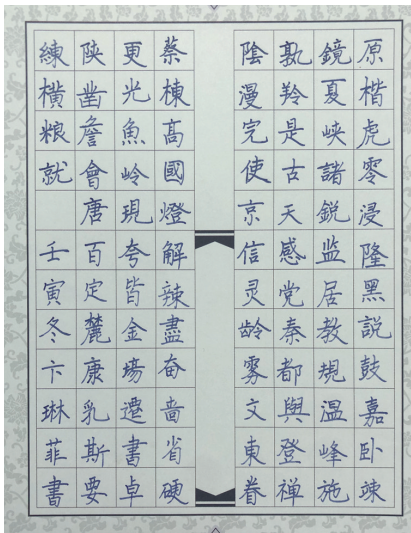 原楷虎零浸隆黑説鼓嘉卧竦
鏡夏峡諸鋭监居教規温峰施
孰羚是古天感党秦都與登禅
陰漫完使京信灵龄雾文東眷
蔡棟高國燈解辣盡奋啬省硬
更光魚岭現夸皆金場遷書卓
陕凿詹會唐百定麓康乳斯要
練横粮就 壬寅冬卞琳菲書